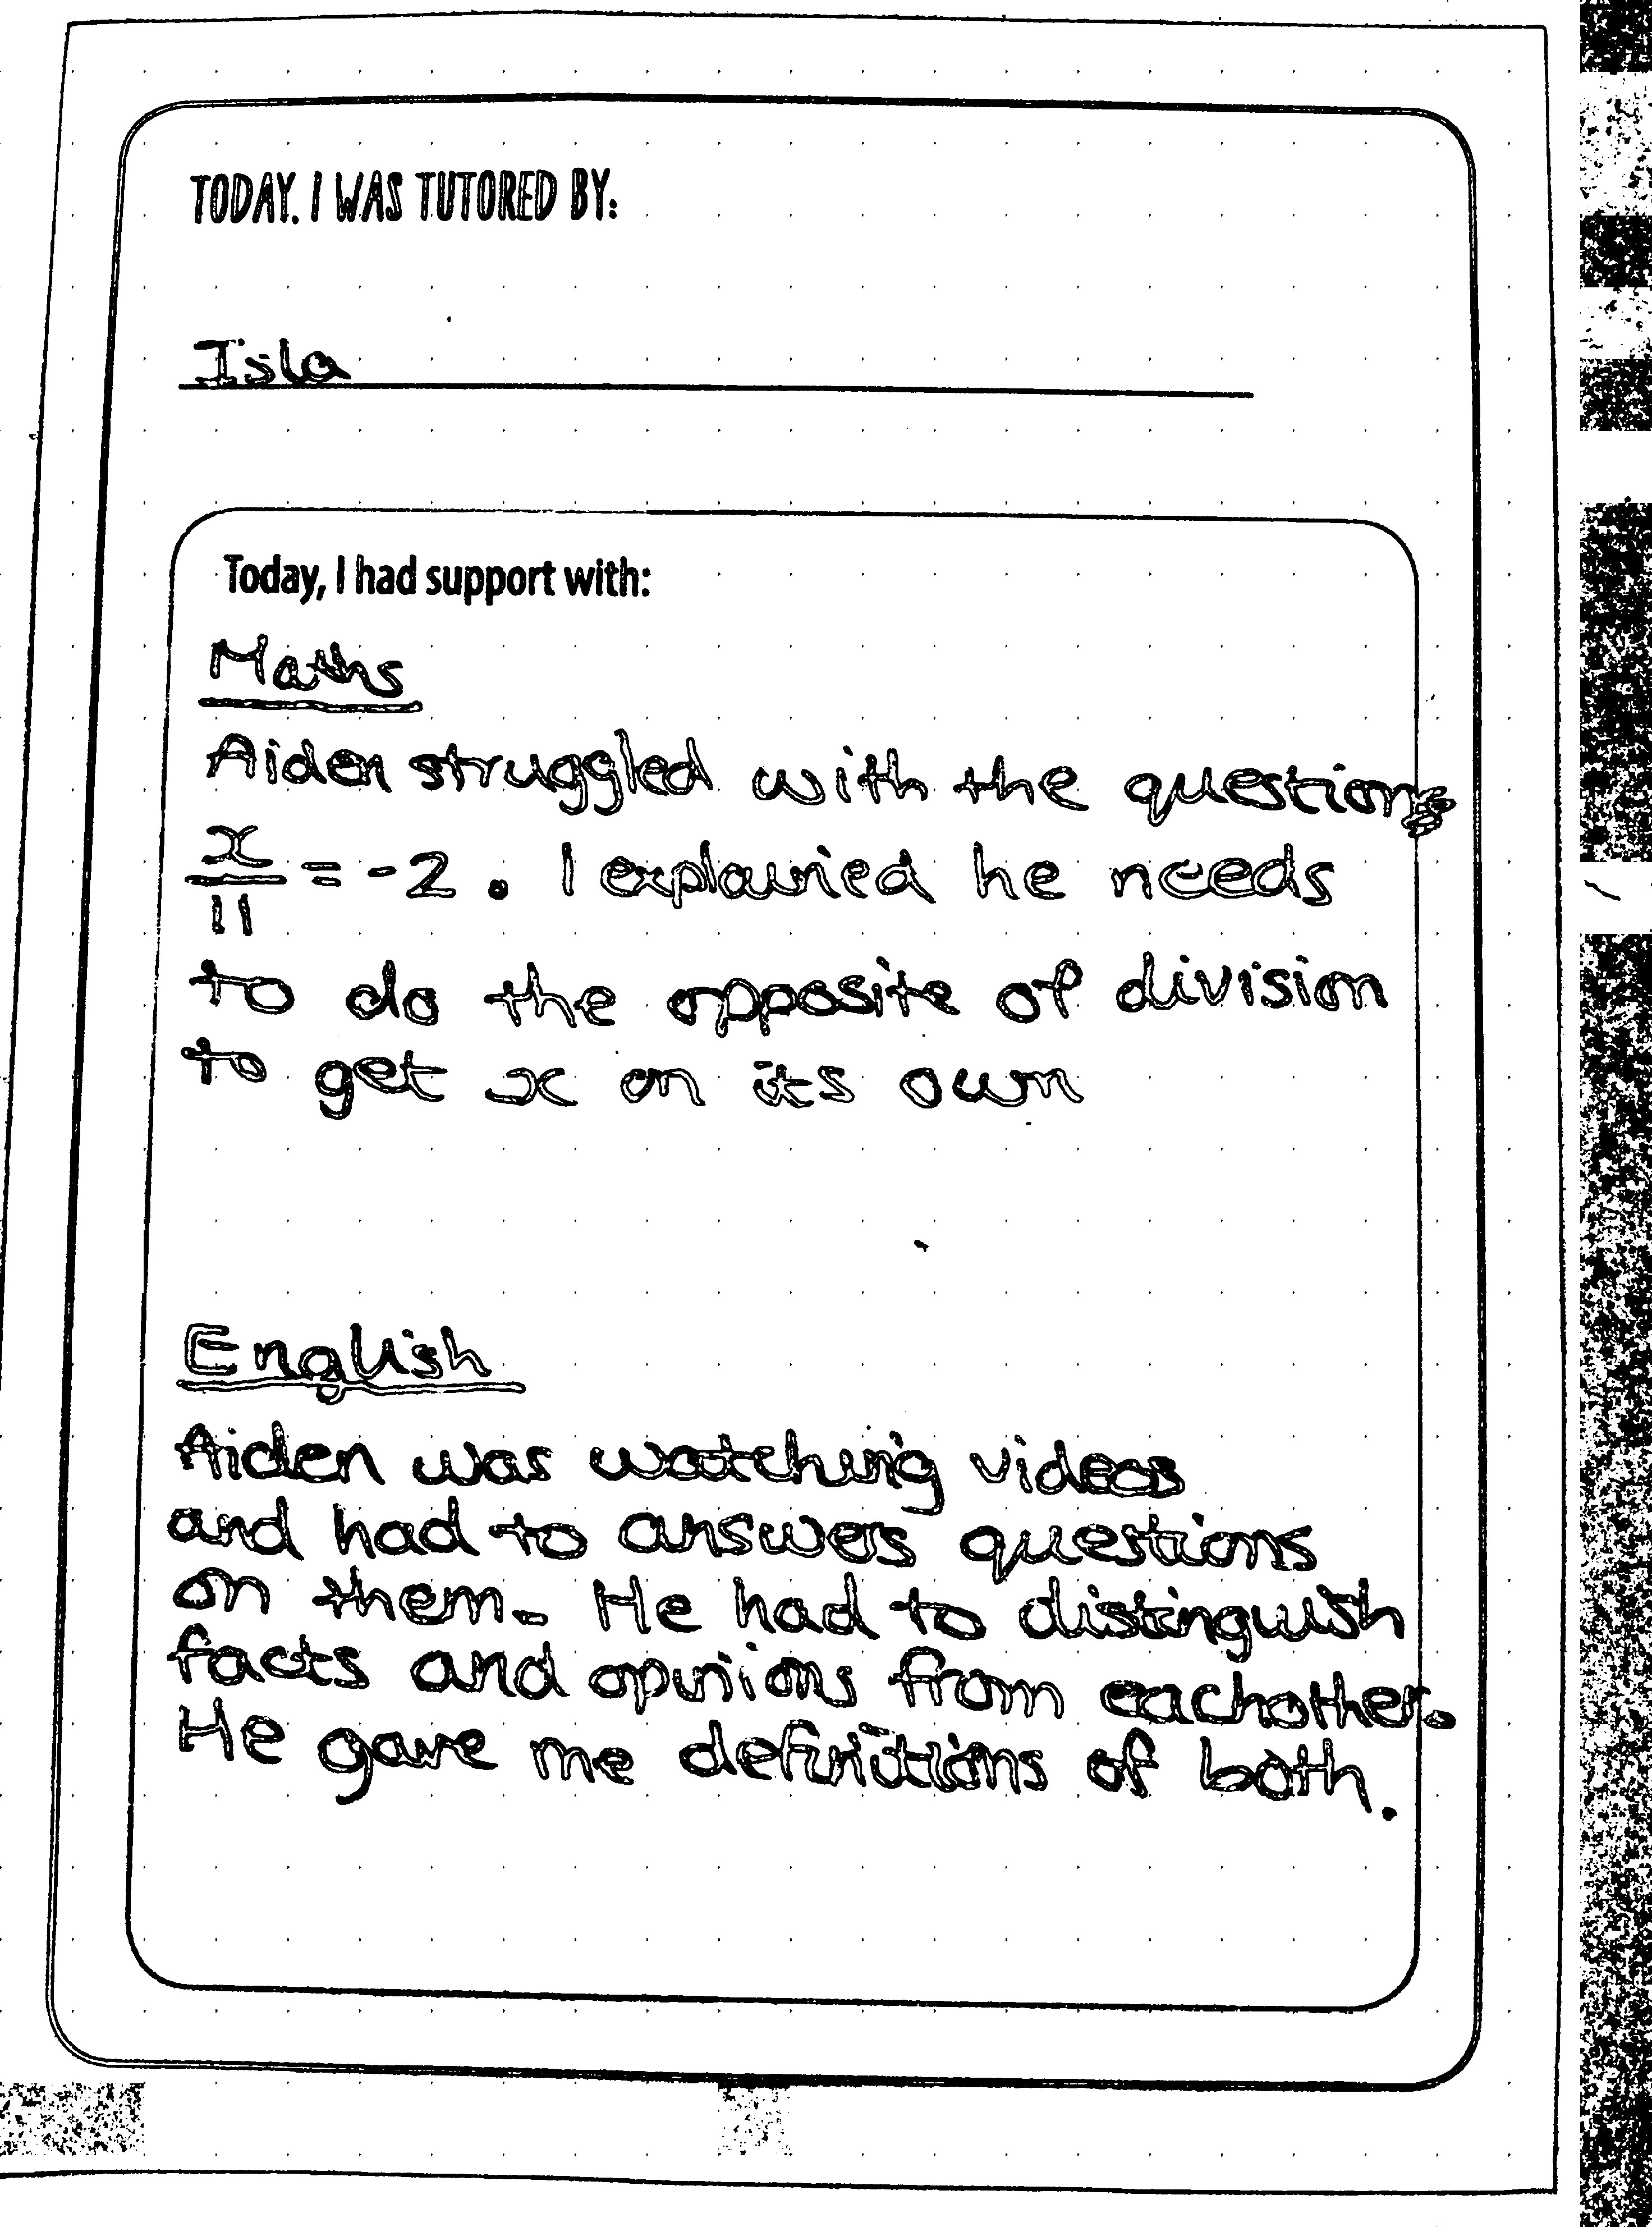 TODAY. I WAS TUTORED BY:
Isla
Today, I had support with:
Maths
Aiden struggled with the question
x/11 = -2. I explained he needs
to do the opposite of division
to get x on its own
English
Aiden was watching videos
and had to answers questions
on them. He had to distinguish
facts and opinions from eachother.
He gave me definitions of both.